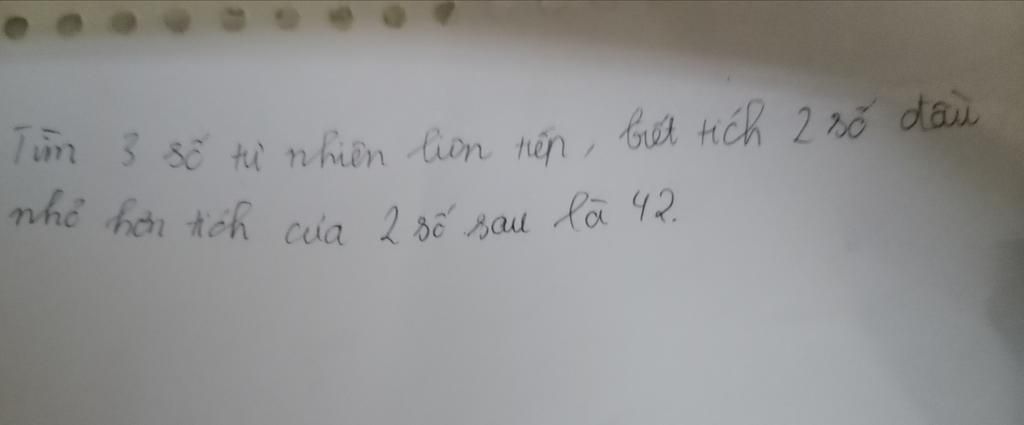 Tìm 3 số tự nhiên liên tiếp, biết tích 2 số đầu
nhỏ hơn tích của 2 số sau là 42.